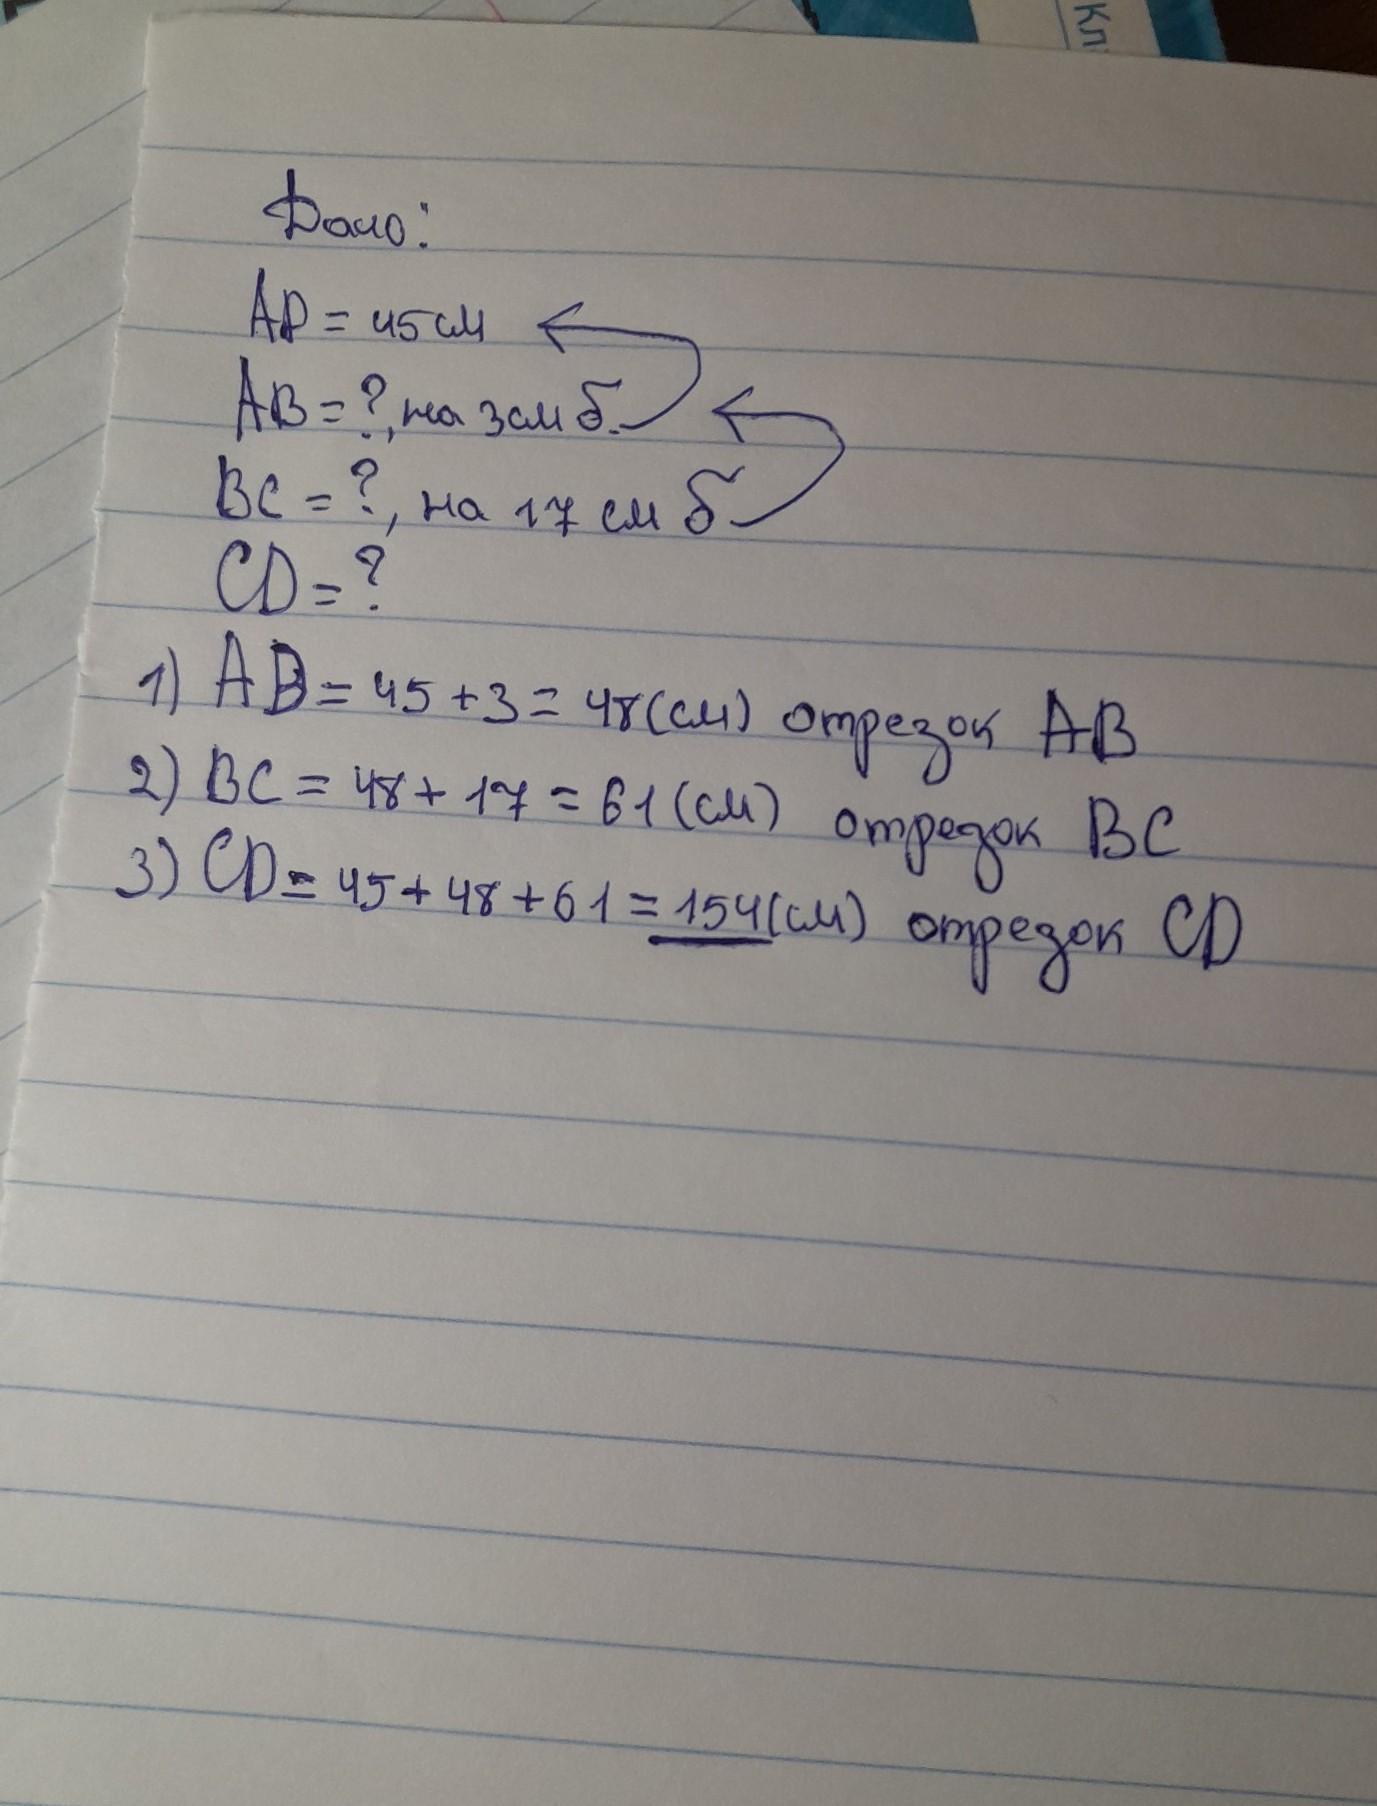 Кл
Дано:
AD = 45 см
AB = ?, на 3 см б.
BC = ?, на 17 см б
CD = ?
1) AB = 45 + 3 = 48 (см) отрезок AB
2) BC = 48 + 17 = 61 (см) отрезок BC
3) CD = 45 + 48 + 61 = 154 (см) отрезок CD